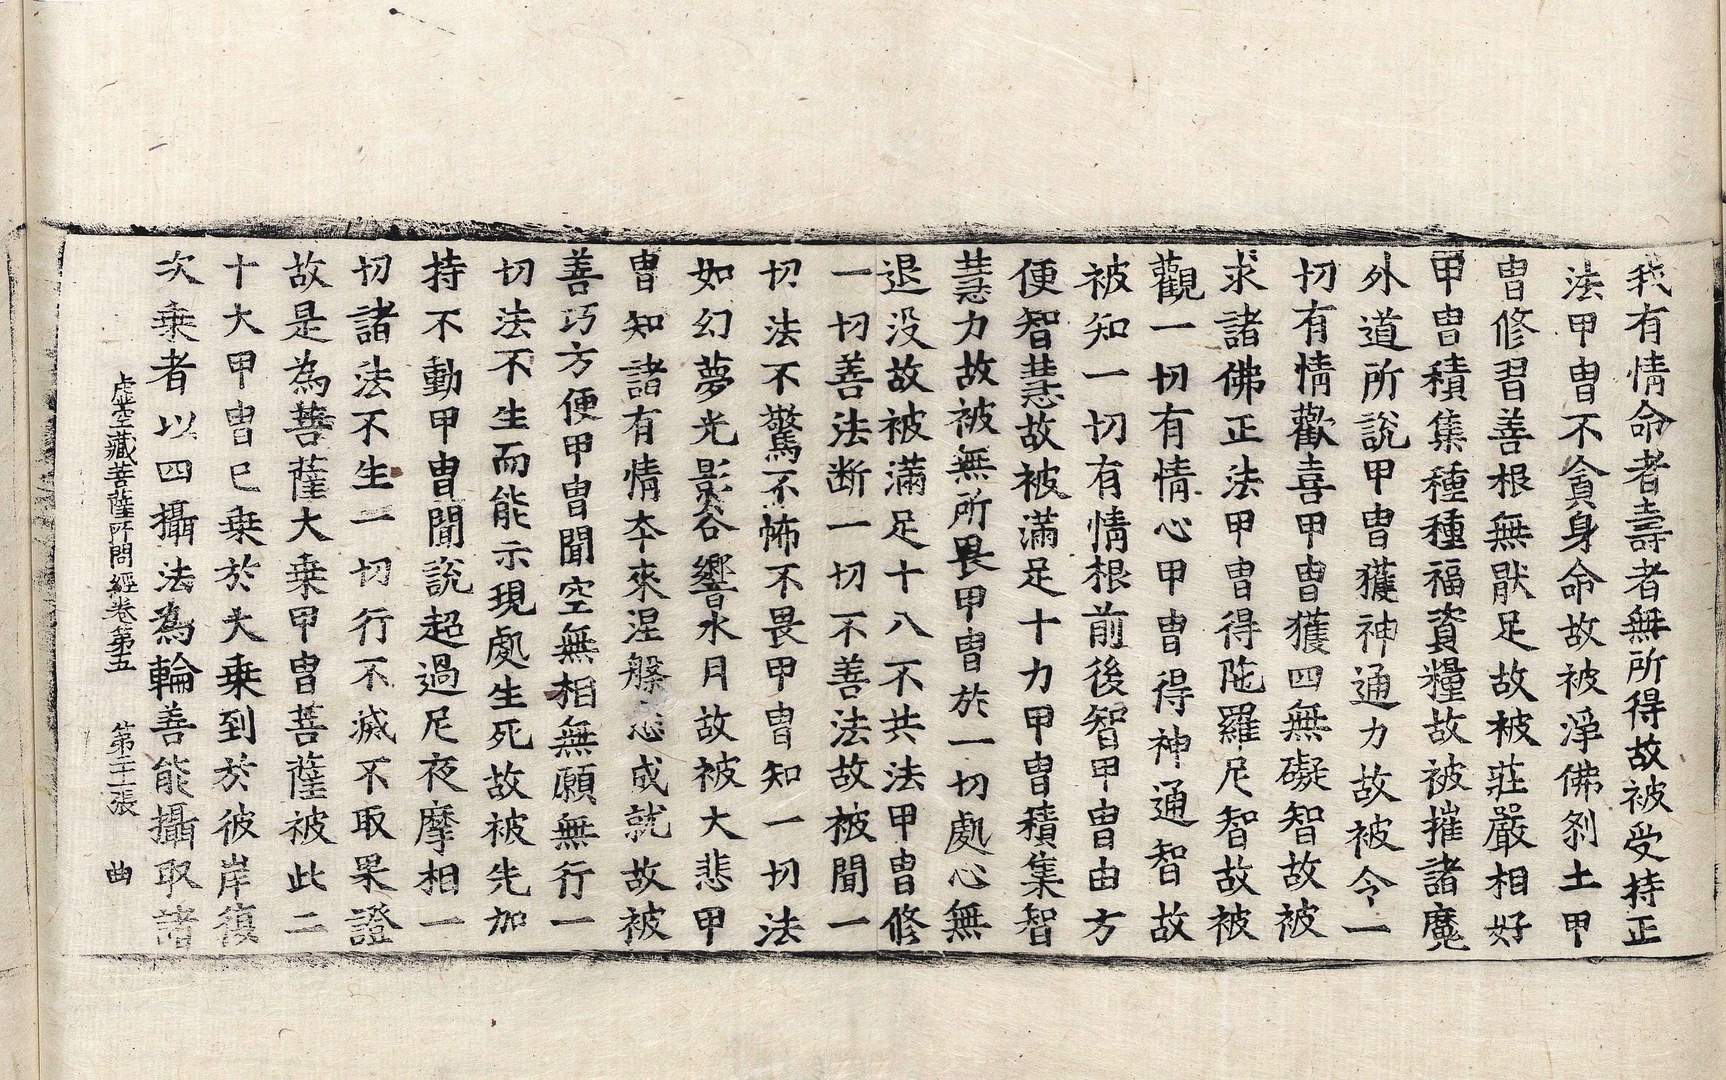 我有情命者壽者無所得故被受持正
法甲冑不貪身命故被淨佛剎土甲
冑修習善根無猒足故被莊嚴相好
甲冑積集種種福資糧故被摧諸魔
外道所說甲冑獲神通力故被令一
切有情歡喜甲冑獲四無礙智故被
求諸佛正法甲冑得陁羅尼智故被
觀一切有情心甲冑得神通智故
被知一切有情根前後智甲冑由方
便智慧故被滿足十力甲冑積集智
慧力故被無所畏甲冑於一切處心無
退没故被滿足十八不共法甲冑修
一切善法断一切不善法故被聞一
切法不驚不怖不畏甲冑知一切法
如幻夢光影谷響水月故被大悲甲
冑知諸有情本來涅槃悉成就故被
善巧方便甲冑聞空無相無願無行一
切法不生而能示現處生死故被先加
持不動甲冑聞說超過尼夜摩相一
切諸法不生一切行不滅不取果證
故是為菩薩大乗甲冑菩薩被此二
十大甲冑已乗於大乗到於彼岸復
次乗者以四攝法為輪善能攝取諸
虛空藏菩薩所問經卷第五 第二十張 曲